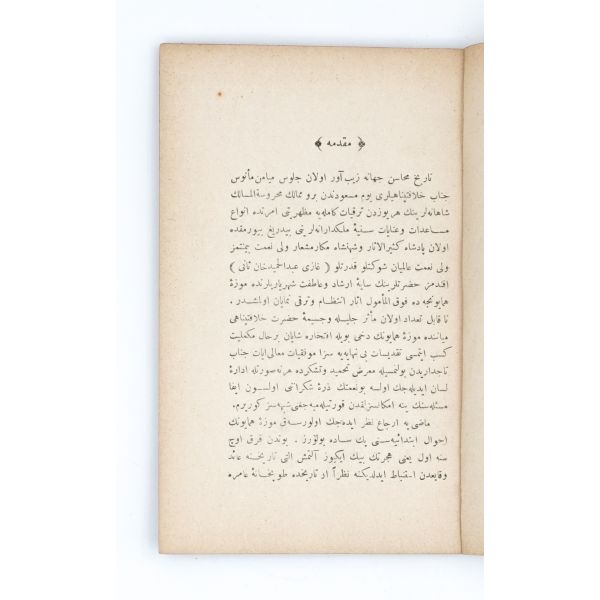 ﴿ مقدمه ﴾
تاریخ محاسن جهانه زیب‌آور اولان جلوس میامن مأنوس
جناب خلافتپناهیلری یوم مسعودندن برو ممالك محروسة المسالك
شاهانه‌لرینك هر یوزدن ترقیات كامله‌یه مظهریتی امرنده انواع
مساعدات و عنایات سنیهٔ ملكدارانه‌لرینی بیدریغ بیورمقده
اولان پادشاه كثیرالاثار و شهنشاه مكارمشعار ولی نعمت بیمنتمز
ولی نعمت عالمیان شوكتلو قدرتلو ( غازی عبدالحمید خان ثانی )
افندمز حضرتلرینك سایهٔ ارشاد و عاطفت شهریاریلرنده موزهٔ
همایونجه ده فوق المأمول اثار انتظام و ترقی نمایان اولمشدر .
نا قابل تعداد اولان مآثر جلیله و جسیمهٔ حضرت خلافتپناهی
میاننده موزهٔ همایونك دخی بویله افتخاره شایان برحال مكملیت
كسب ایتمسی تقدیسات بی نهایه‌یه سزا موفقیات معالی‌ایات جناب
تاجداریدن بولنمسیله معرض تحمید و تشكرده هرنه صورتله اداره
لسان ایدیله‌جك اولسه بونعمتك ذرهٔ شكرانی اولسون ایفا
مسئله‌سنك ینه امكانسزلقدن قورتیله‌میه‌جغنی شبهه‌سز كوریرم.
ماضی‌یه ارجاع نظر ایده‌جك اولورسه‌ق موزهٔ همایونك
احوال ابتدائیه‌سنی پك ساده بولورز . بوندن قرق اوچ
سنه اول یعنی هجرتك بیك ایكیوز آلتمش التی تاریخنه عائد
وقایعدن استنباط ایدلدیكنه نظراً او تاریخده طوپخانهٔ عامره